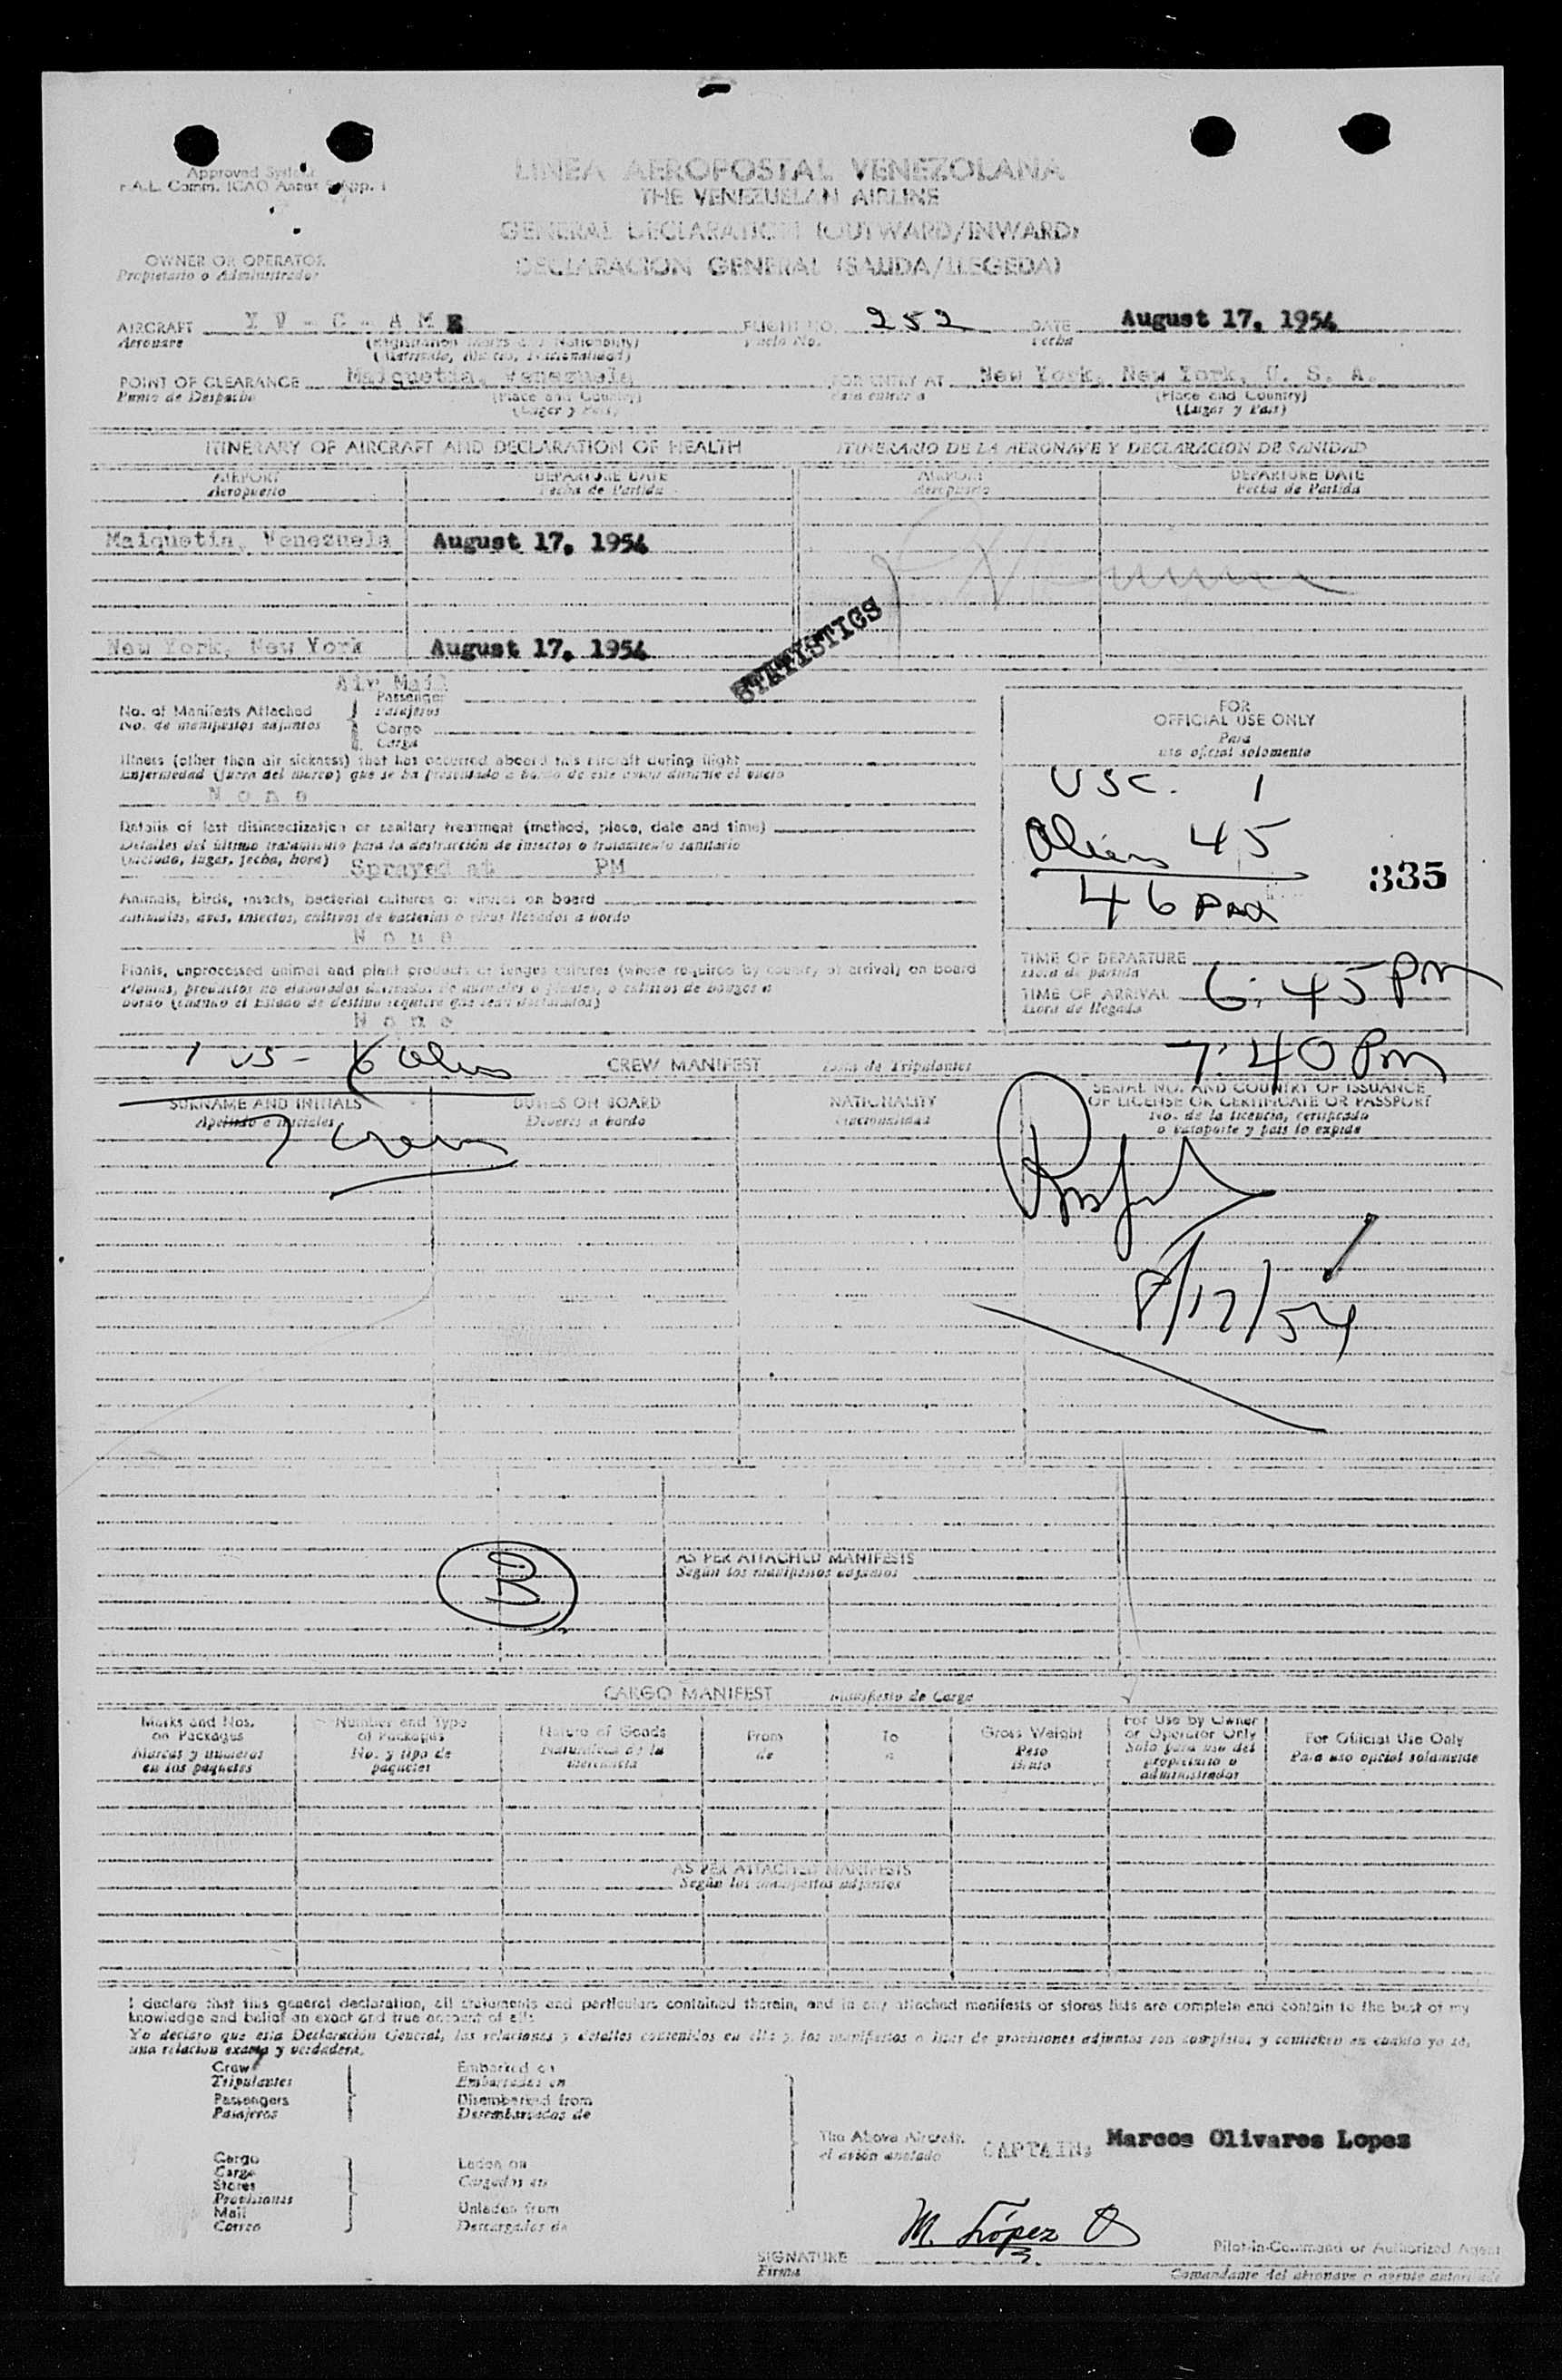 Approved System
F.A.L. Comm. ICAO Annex 9 App. 1
LINEA AEROPOSTAL VENEZOLANA
THE VENEZUELAN AIRLINE
GENERAL DECLARATION (OUTWARD/INWARD)
OWNER OR OPERATOR
Propietario o Administrador
DECLARACION GENERAL (SALIDA/LLEGEDA)
AIRCRAFT Y V - C - A M E FLIGHT NO. 252 DATE August 17, 1954
Aeronave (Registration Marks and Nationality) Vuelo No. Fecha
(Matricula, Marcas, Nacionalidad)
POINT OF CLEARANCE Maiquetia, Venezuela FOR ENTRY AT New York, New York, U. S. A.
Punto de Despacho (Place and Country) Para entrar a (Place and Country)
(Lugar y Pais) (Lugar y Pais)
ITINERARY OF AIRCRAFT AND DECLARATION OF HEALTH ITINERARIO DE LA AERONAVE Y DECLARACION DE SANIDAD
AIRPORT DEPARTURE DATE AIRPORT DEPARTURE DATE
Aeropuerto Fecha de Partida Aeropuerto Fecha de Partida
Maiquetia, Venezuela August 17, 1954
New York, New York August 17, 1954
STATISTICS
Air Mail
No. of Manifests Attached Passenger
No. de manifiestos adjuntos Pasajeros
Cargo
Carga
FOR
OFFICIAL USE ONLY
Para
uso oficial solamente
Illness (other than air sickness) that has occurred aboard this aircraft during flight
Enfermedad (fuera del mareo) que se ha presentado a bordo de este avion durante el vuelo
N o n e
USC. 1
Aliens 45
46 pax
335
Details of last disinsectization or sanitary treatment (method, place, date and time)
Detalles del último tratamiento para la destrucción de insectos o tratamiento sanitario
(método, lugar, fecha, hora) Sprayed at PM
Animals, birds, insects, bacterial cultures or viruses on board
Animales, aves, insectos, cultivos de bacterias o virus llevados a bordo
N o n e
Plants, unprocessed animal and plant products or fungus cultures (where required by country of arrival) on board
bordo (cuando el Estado de destino requiere que sean declarados)
N o n e
TIME OF DEPARTURE
Hora de partida
TIME OF ARRIVAL 6:45 PM
Hora de llegada
7:40 PM
1 US - 6 Aliens
7 Crew
CREW MANIFEST Lista de Tripulantes
SURNAME AND INITIALS DUTIES ON BOARD NATIONALITY SERIAL NO. AND COUNTRY OF ISSUANCE
OF LICENSE OR CERTIFICATE OR PASSPORT
Apellido e iniciales Deberes a bordo Nacionalidad No. de la licencia, certificado
o pasaporte y pais lo expide
8/17/54
B
AS PER ATTACHED MANIFESTS
Según los manifiestos adjuntos
CARGO MANIFEST Manifiesto de Carga
Marks and Nos.
on Packages
Marcas y números
en los paquetes
Number and Type
of Packages
No. y tipo de
paquetes
Nature of Goods
Naturaleza de la
mercancia
From
de
To
a
Gross Weight
Peso
Bruto
For Use by Owner
or Operator Only
Solo para uso del
propietario o
administrador
For Official Use Only
Para uso oficial solamente
AS PER ATTACHED MANIFESTS
Según los manifiestos adjuntos
I declare that this general declaration, all statements and particulars contained therein, and in any attached manifests or stores lists are complete and contain to the best of my
knowledge and belief an exact and true account of all:
Yo declaro que esta Declaración General, las relaciones y detalles contenidos en ella y los manifiestos o listas de provisiones adjuntas son completos y contienen en cuanto yo sé,
una relacion exacta y verdadera.
Crew
Tripulantes
Passengers
Pasajeros
Embarked on
Embarcados en
Disembarked from
Desembarcados de
Cargo
Carga
Stores
Provisiones
Mail
Correo
Laden on
Cargados en
Unladen from
Descargados de
The Above Aircraft.
el avión anotado
CAPTAIN: Marcos Olivares Lopez
M. López O
SIGNATURE Pilot-in-Command or Authorized Agent
Firma Comandante del aeronave o agente autorizado